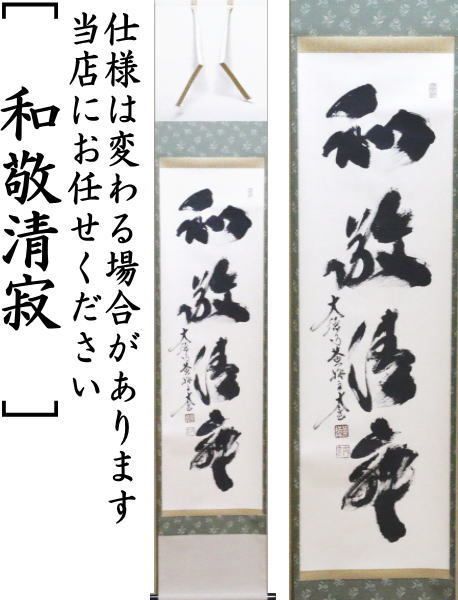 仕様は変わる場合があります
当店にお任せください
［和敬清寂］
和敬清寂
和敬清寂